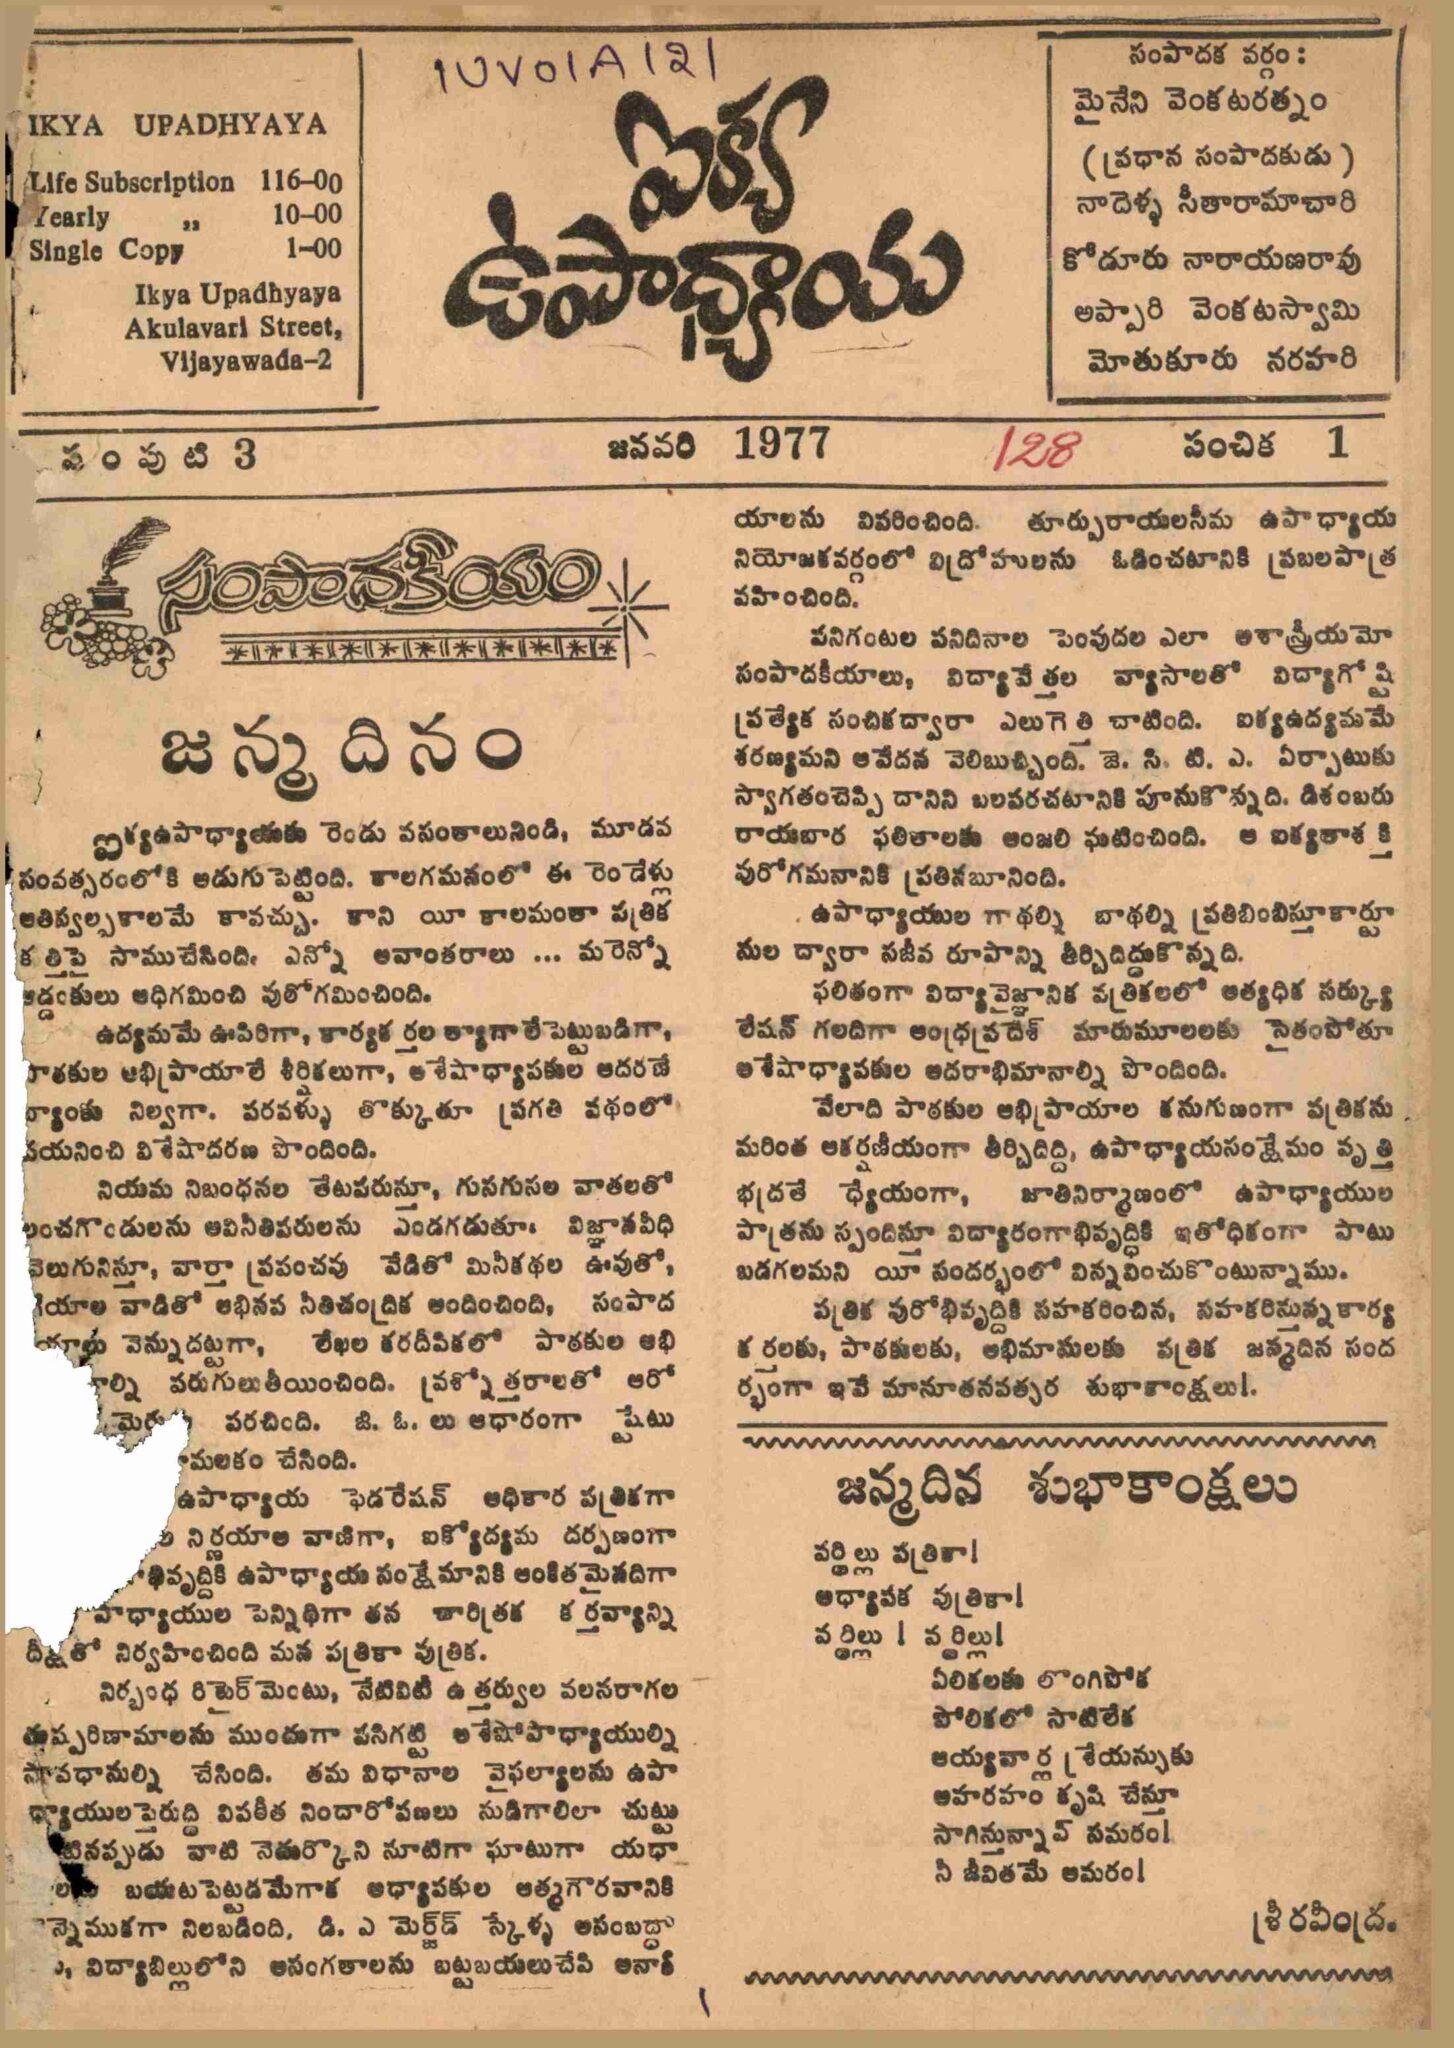 IUVOIA121
IKYA UPADHYAYA
Life Subscription 116-00
Yearly ,, 10-00
Single Copy 1-00
Ikya Upadhyaya
Akulavari Street,
Vijayawada-2
ఐక్య
ఉపాధ్యాయ
సంపాదక వర్గం :
మైనేని వెంకటరత్నం
( ప్రధాన సంపాదకుడు )
నాదెళ్ళ సీతారామాచారి
కోడూరు నారాయణరావు
అప్పారి వెంకటస్వామి
మోతుకూరు నరహరి
సంపుటి 3
జనవరి 1977
128
సంచిక 1
సంపాదకీయం
జన్మదినం
ఐక్యఉపాధ్యాయకు రెండు వసంతాలునిండి, మూడవ
సంవత్సరంలోకి అడుగుపెట్టింది. కాలగమనంలో ఈ రెండేళ్లు
అతిస్వల్పకాలమే కావచ్చు. కాని యీ కాలమంతా పత్రిక
కత్తిపై సాముచేసింది. ఎన్నో అవాంతరాలు ... మరెన్నో
అడ్డంకులు అధిగమించి పురోగమించింది.
ఉద్యమమే ఊపిరిగా, కార్యకర్తల త్యాగాలే పెట్టుబడిగా,
పాఠకుల అభిప్రాయాలే శీర్షికలుగా, అశేషాధ్యాపకుల ఆదరణే
బ్యాంకు నిల్వగా. పరవళ్ళు తొక్కుతూ ప్రగతి పథంలో
పయనించి విశేషాదరణ పొందింది.
నియమ నిబంధనల తేటపరుస్తూ, గుసగుసల వాతలతో
లంచగొండులను అవినీతిపరులను ఎండగడుతూ. విజ్ఞానవీధి
వెలుగునిస్తూ, వార్తా ప్రపంచపు వేడితో మినీకథల ఊపుతో,
వాడితో అభినవ నీతిచంద్రిక అందించింది, సంపాద
వెన్నుదట్టగా, లేఖల కరదీపికలో పాఠకుల అభి
పరుగులుతీయించింది. ప్రశ్నోత్తరాలతో ఆరో
పరచింది. జి. ఓ. లు ఆధారంగా స్టేటు
చేసింది.
ఉపాధ్యాయ ఫెడరేషన్ అధికార పత్రికగా
నిర్ణయాల వాణిగా, ఐక్యోద్యమ దర్పణంగా
ఉపాధ్యాయ సంక్షేమానికి అంకితమైనదిగా
పెన్నిథిగా తన చారిత్రక కర్తవ్యాన్ని
దీక్షతో నిర్వహించింది మన పత్రికా పుత్రిక.
నిర్బంధ రిటైర్‌మెంటు, నేటివిటీ ఉత్తర్వుల వలనరాగల
దుష్పరిణామాలను ముందుగా పసిగట్టి అశేషోపాధ్యాయుల్ని
సావధానుల్ని చేసింది. తమ విధానాల వైఫల్యాలను ఉపా
ధ్యాయులపైరుద్ది విపరీత నిందారోపణలు సుడిగాలిలా చుట్టు
వాటి నెదుర్కొని సూటిగా ఘాటుగా యథా
బయటపెట్టడమేగాక అధ్యాపకుల ఆత్మగౌరవానికి
నిలబడింది. డి. ఎ మెర్జ్‌డ్ స్కేళ్ళ అసంబద్ధా
విద్యాబిల్లులోని అసంగతాలను బట్టబయలుచేసి అనాకి
యాలను వివరించింది. తూర్పురాయలసీమ ఉపాధ్యాయ
నియోజకవర్గంలో విద్రోహులను ఓడించటానికి ప్రబలపాత్ర
వహించింది.
పనిగంటల పనిదినాల పెంపుదల ఎలా అశాస్త్రీయమో
సంపాదకీయాలు, విద్యావేత్తల వ్యాసాలతో విద్యాగోష్టి
ప్రత్యేక సంచికద్వారా ఎలుగెత్తి చాటింది. ఐక్యఉద్యమమే
శరణ్యమని ఆవేదన వెలిబుచ్చింది. జె. సి. టి. ఎ. ఏర్పాటుకు
స్వాగతంచెప్పి దానిని బలపరచటానికి పూనుకొన్నది. డిశంబరు
రాయబార ఫలితాలకు అంజలి ఘటించింది. ఆ ఐక్యతాశక్తి
పురోగమనానికి ప్రతినబూనింది.
ఉపాధ్యాయుల గాథల్ని బాథల్ని ప్రతిబింబిస్తూకార్టూ
నుల ద్వారా సజీవ రూపాన్ని తీర్చిదిద్దుకొన్నది.
ఫలితంగా విద్యావైజ్ఞానిక పత్రికలలో అత్యధిక సర్క్యు
లేషన్ గలదిగా ఆంధ్రప్రదేశ్ మారుమూలలకు సైతంపోతూ
అశేషాధ్యాపకుల ఆదరాభిమానాల్ని పొందింది.
వేలాది పాఠకుల అభిప్రాయాల కనుగుణంగా పత్రికను
మరింత ఆకర్షణీయంగా తీర్చిదిద్ది, ఉపాధ్యాయసంక్షేమం వృత్తి
భద్రతే ధ్యేయంగా, జాతినిర్మాణంలో ఉపాధ్యాయుల
పాత్రను స్పందిస్తూ విద్యారంగాభివృద్ధికి ఇతోధికంగా పాటు
బడగలమని యీ సందర్భంలో విన్నవించుకొంటున్నాము.
పత్రిక పురోభివృద్దికి సహకరించిన, సహకరిస్తున్నకార్య
కర్తలకు, పాఠకులకు, అభిమానులకు పత్రిక జన్మదిన సంద
ర్భంగా ఇవే మానూతనవత్సర శుభాకాంక్షలు!.
జన్మదిన శుభాకాంక్షలు
వర్థిల్లు పత్రికా!
అధ్యాపక పుత్రికా!
వర్థిల్లు ! వర్థిల్లు!
ఏలికలకు లొంగిపోక
పోలికలో సాటిలేక
అయ్యవార్ల శ్రేయస్సుకు
అహరహం కృషి చేస్తూ
సాగిస్తున్నావ్ సమరం!
నీ జీవితమే అమరం!
శ్రీరవీంద్ర.